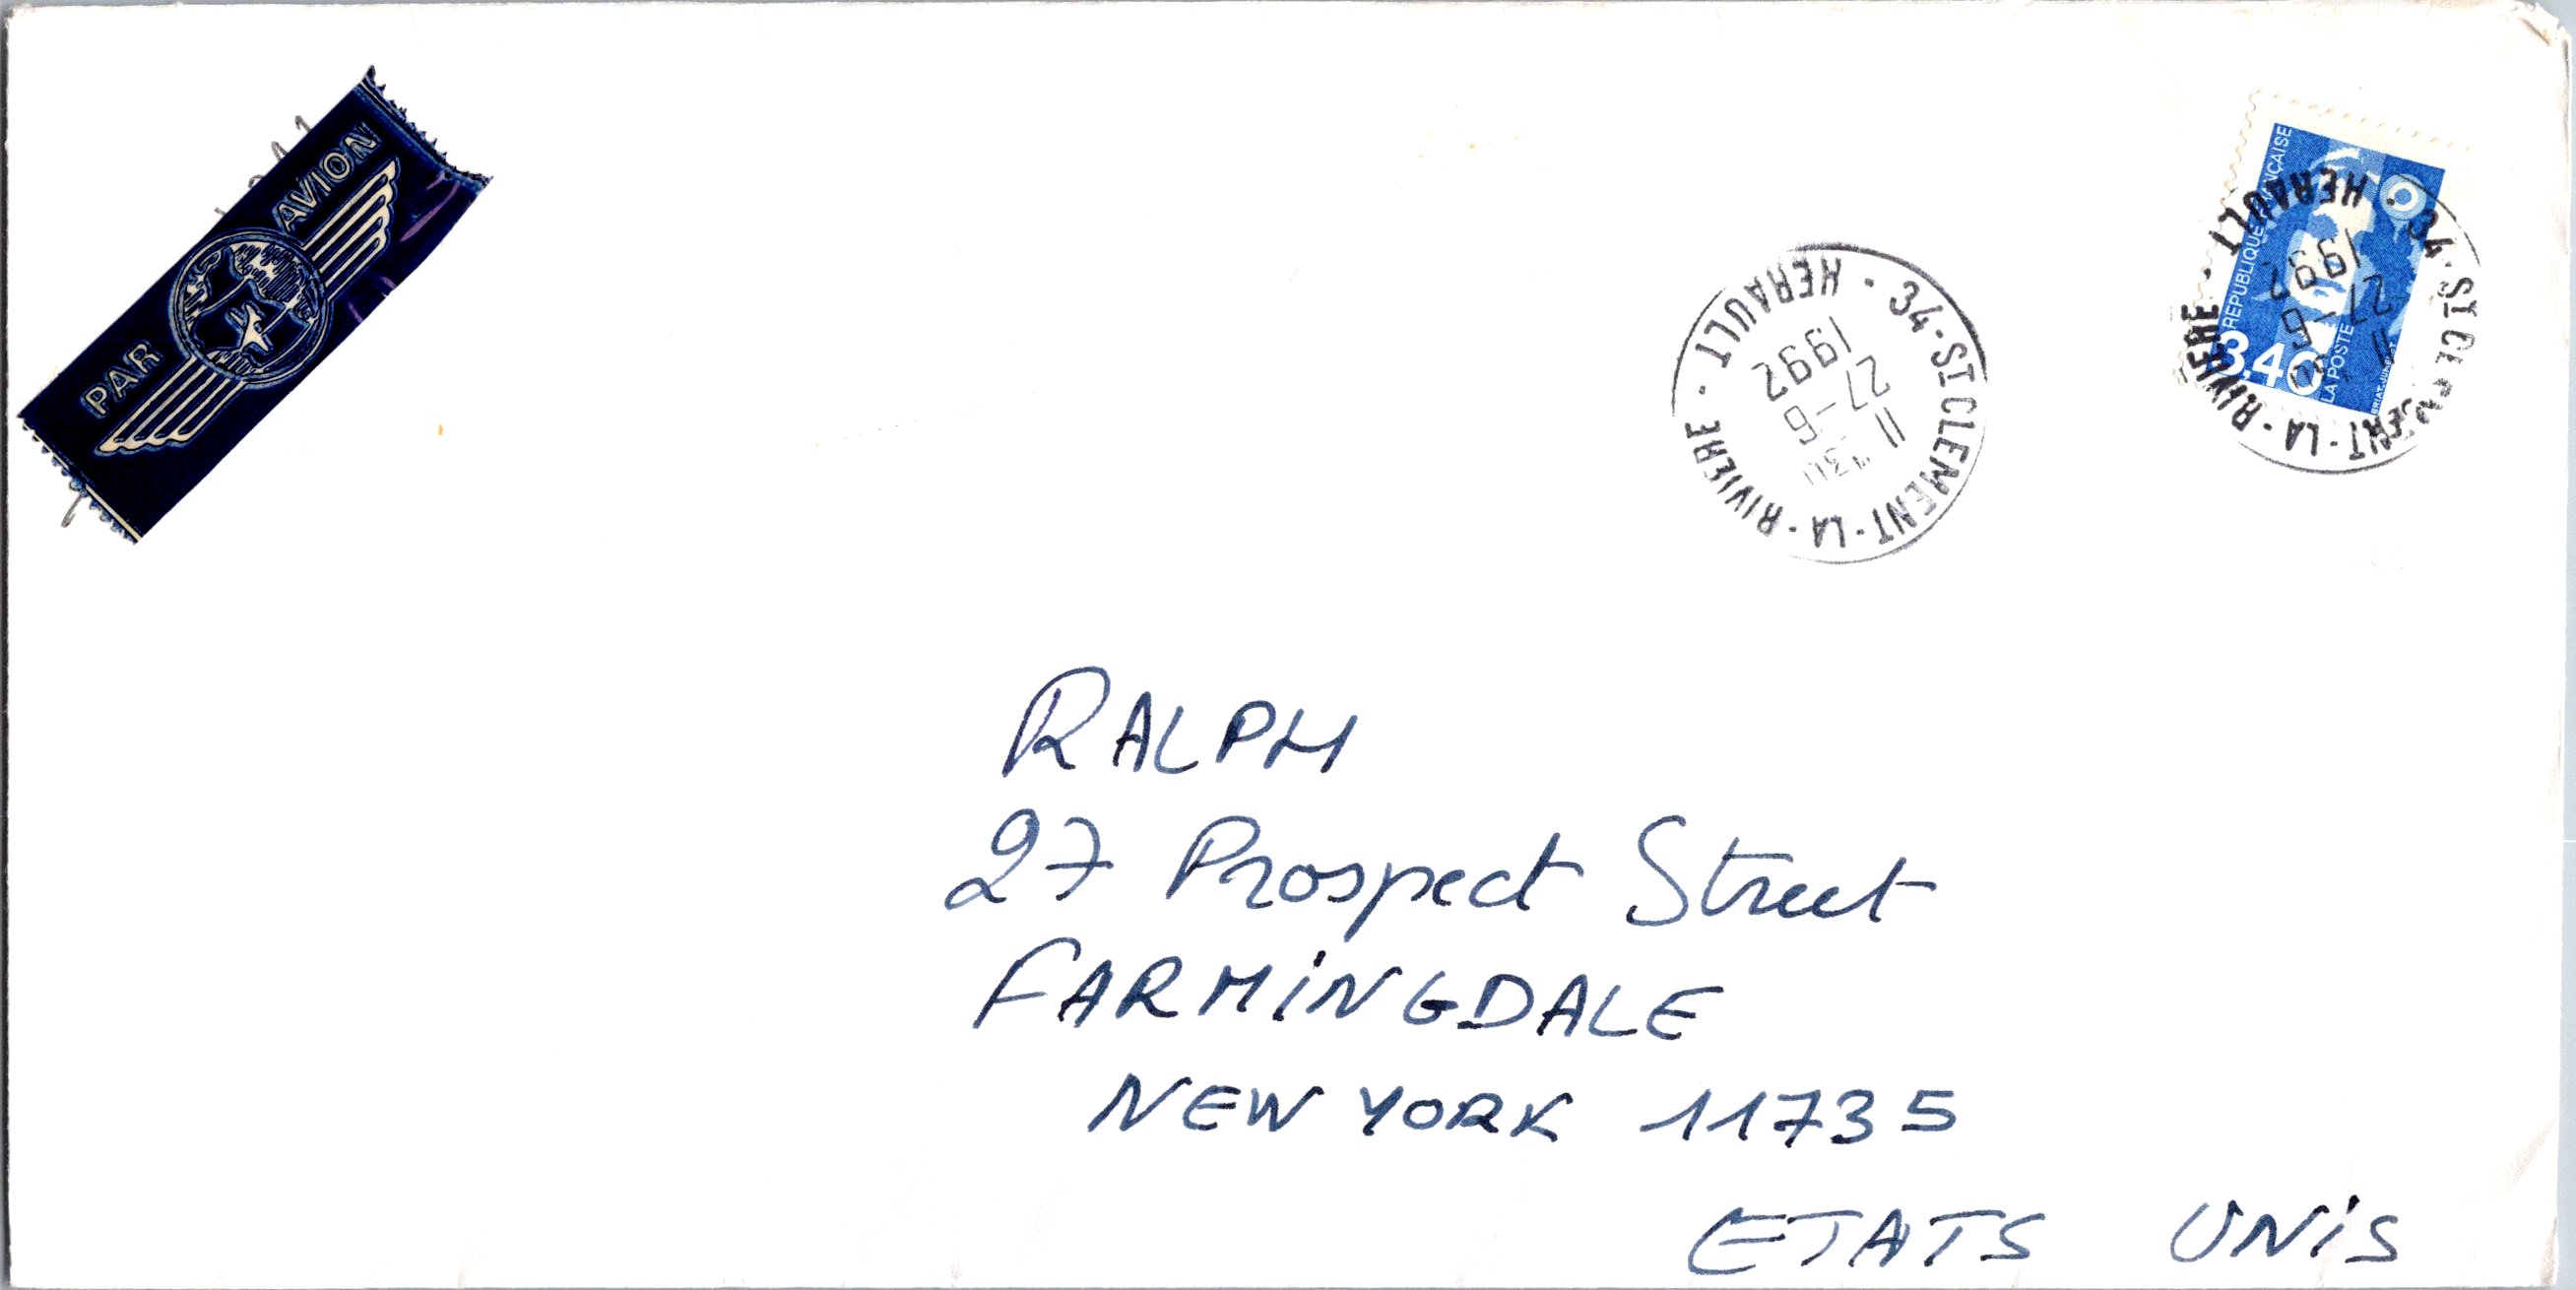 PAR AVION
34 · ST CLEMENT · LA · RIVIERE · HERAULT ·
11 30
27 - 6
1992
REPUBLIQUE FRANÇAISE
3.40
LA POSTE
34 · ST CLEMENT · LA · RIVIERE · HERAULT ·
27 - 6
1992
RALPH
27 Prospect Street
FARMiNGDALE
NEW YORK 11735
ETATS UNiS